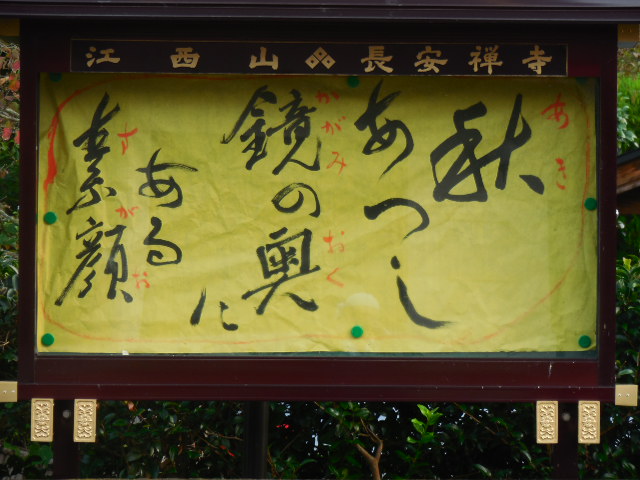 江西山 長安禅寺
秋
あき
あつし
鏡の奥に
かがみ
おく
ある
素顔
すがお